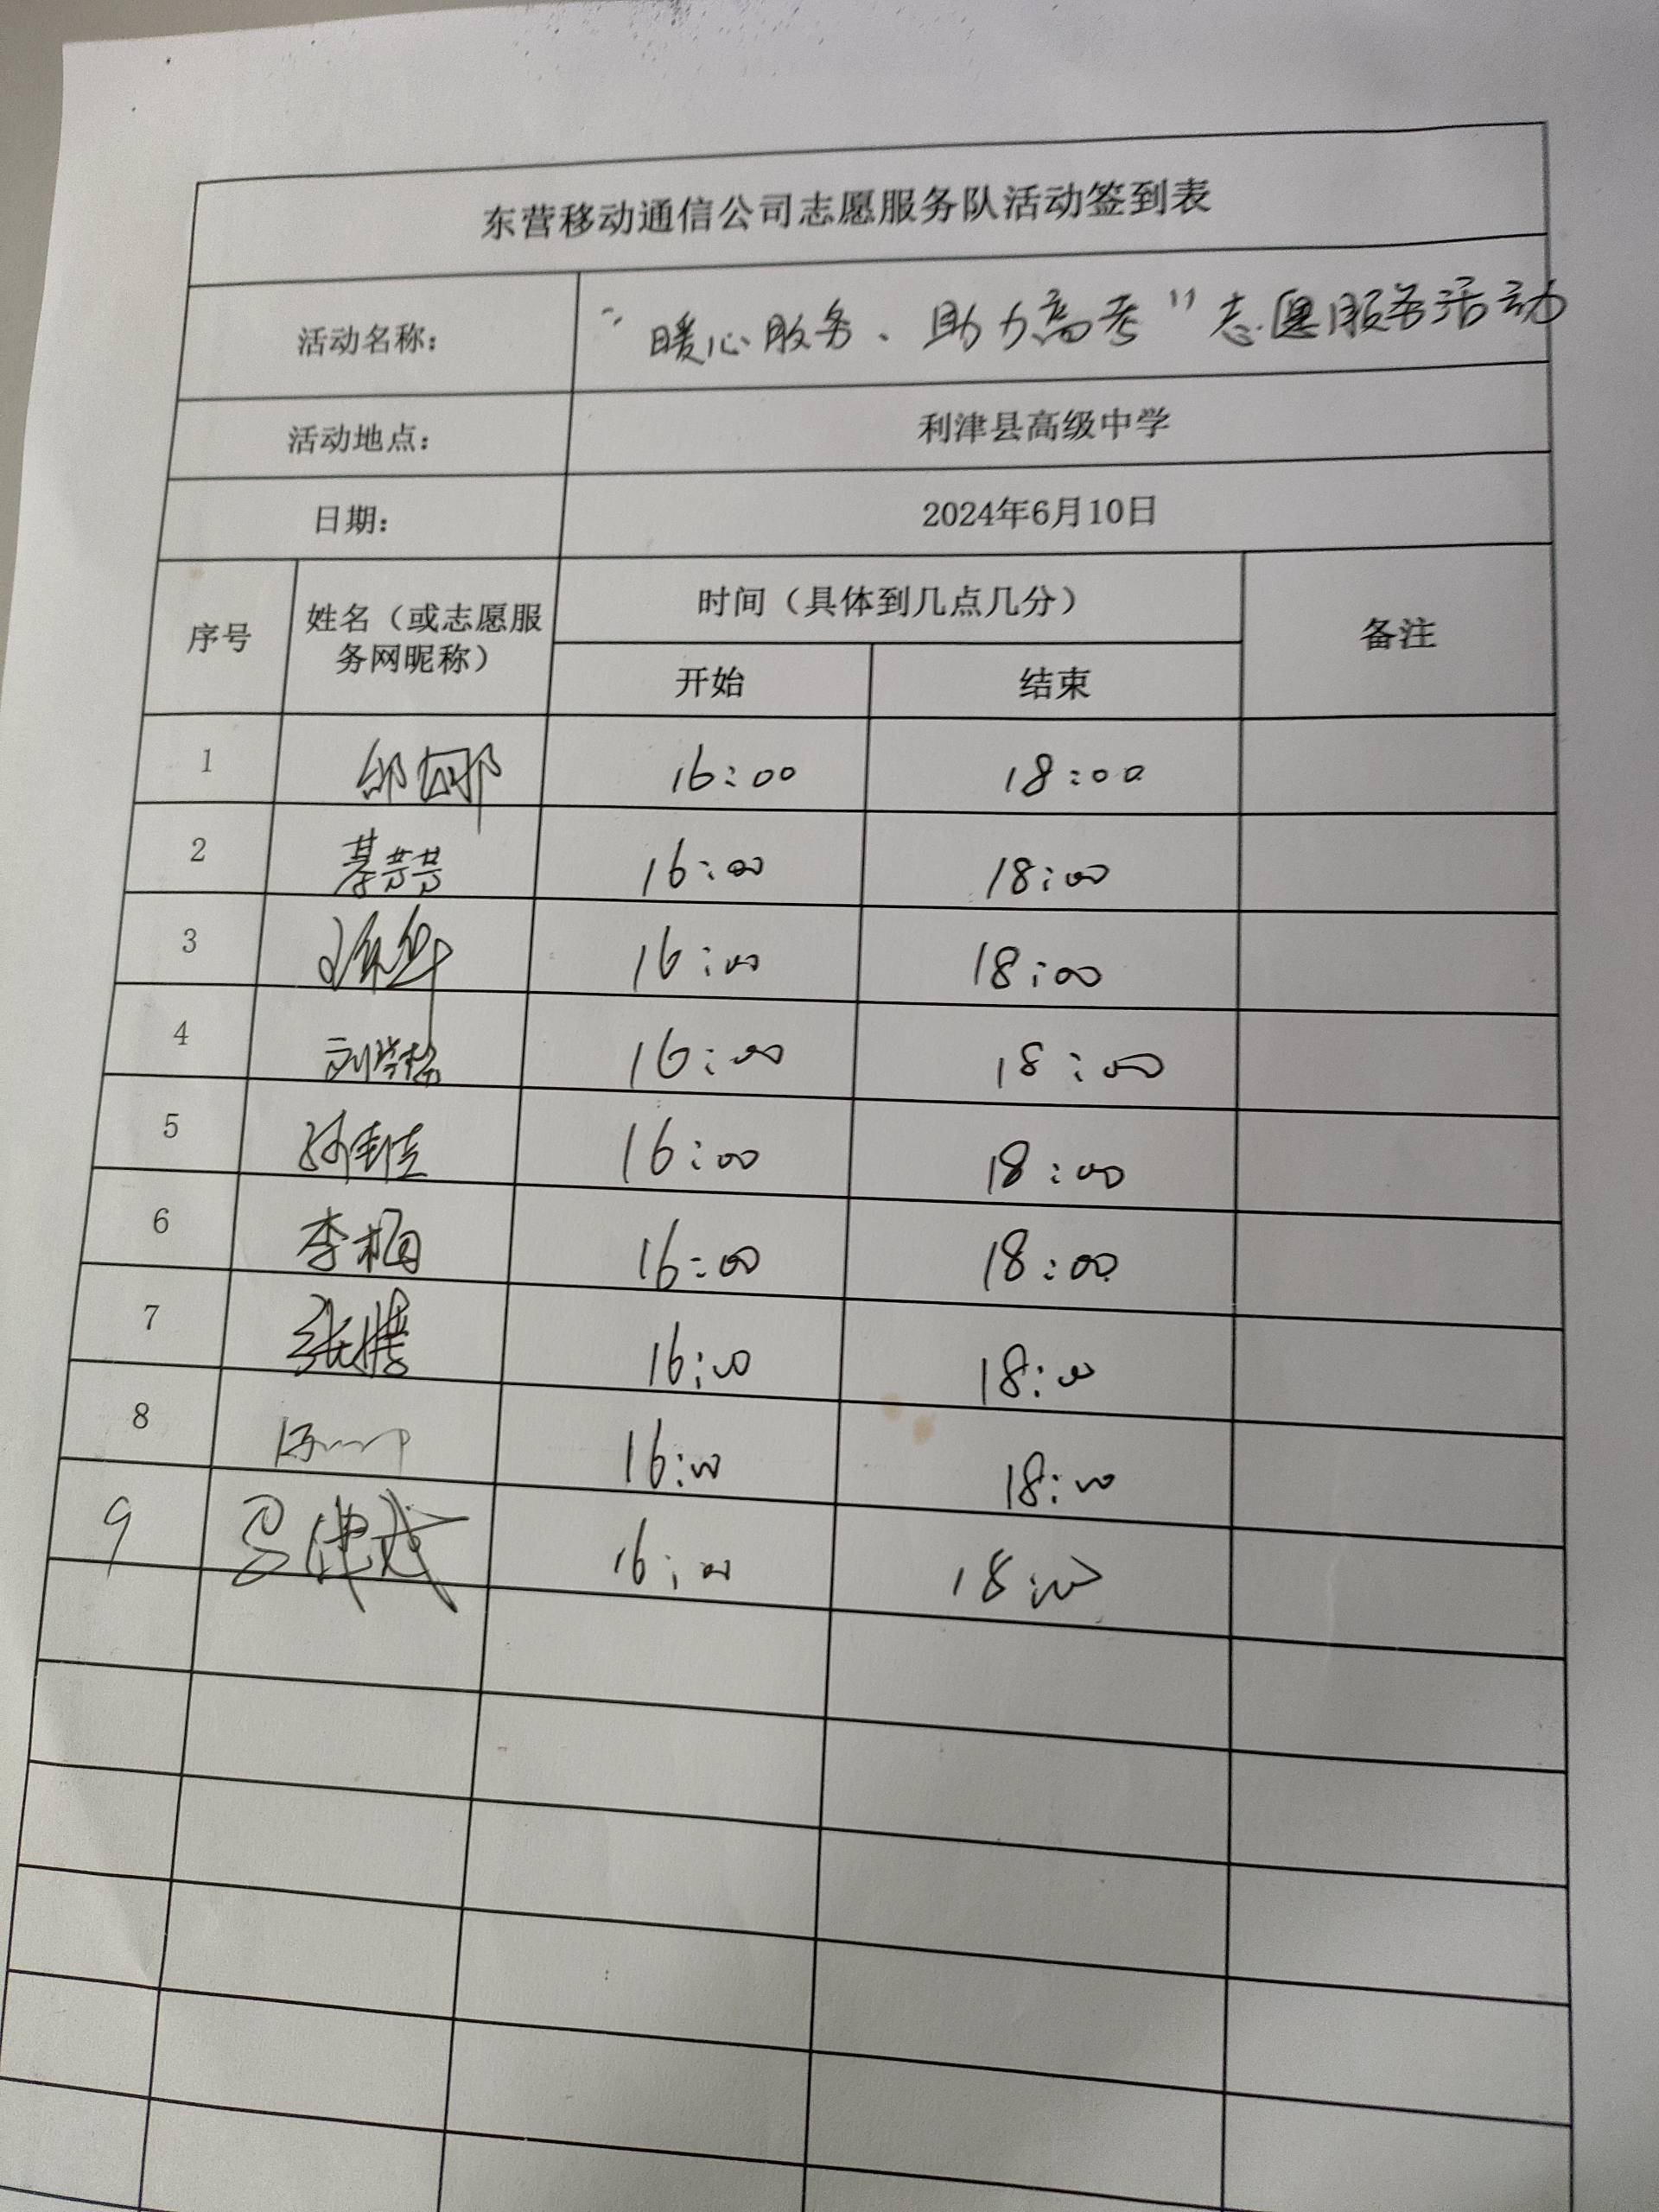 东营移动通信公司志愿服务队活动签到表
活动名称: “暖心服务、助力高考”志愿服务活动
活动地点: 利津县高级中学
日期: 2024年6月10日
序号 姓名（或志愿服务网昵称） 时间（具体到几点几分） 备注
开始 结束
1 16:00 18:00
2 綦芳芳 16:00 18:00
3 16:00 18:00
4 16:00 18:00
5 16:00 18:00
6 李楣 16:00 18:00
7 16:00 18:00
8 16:00 18:00
9 16:00 18:00